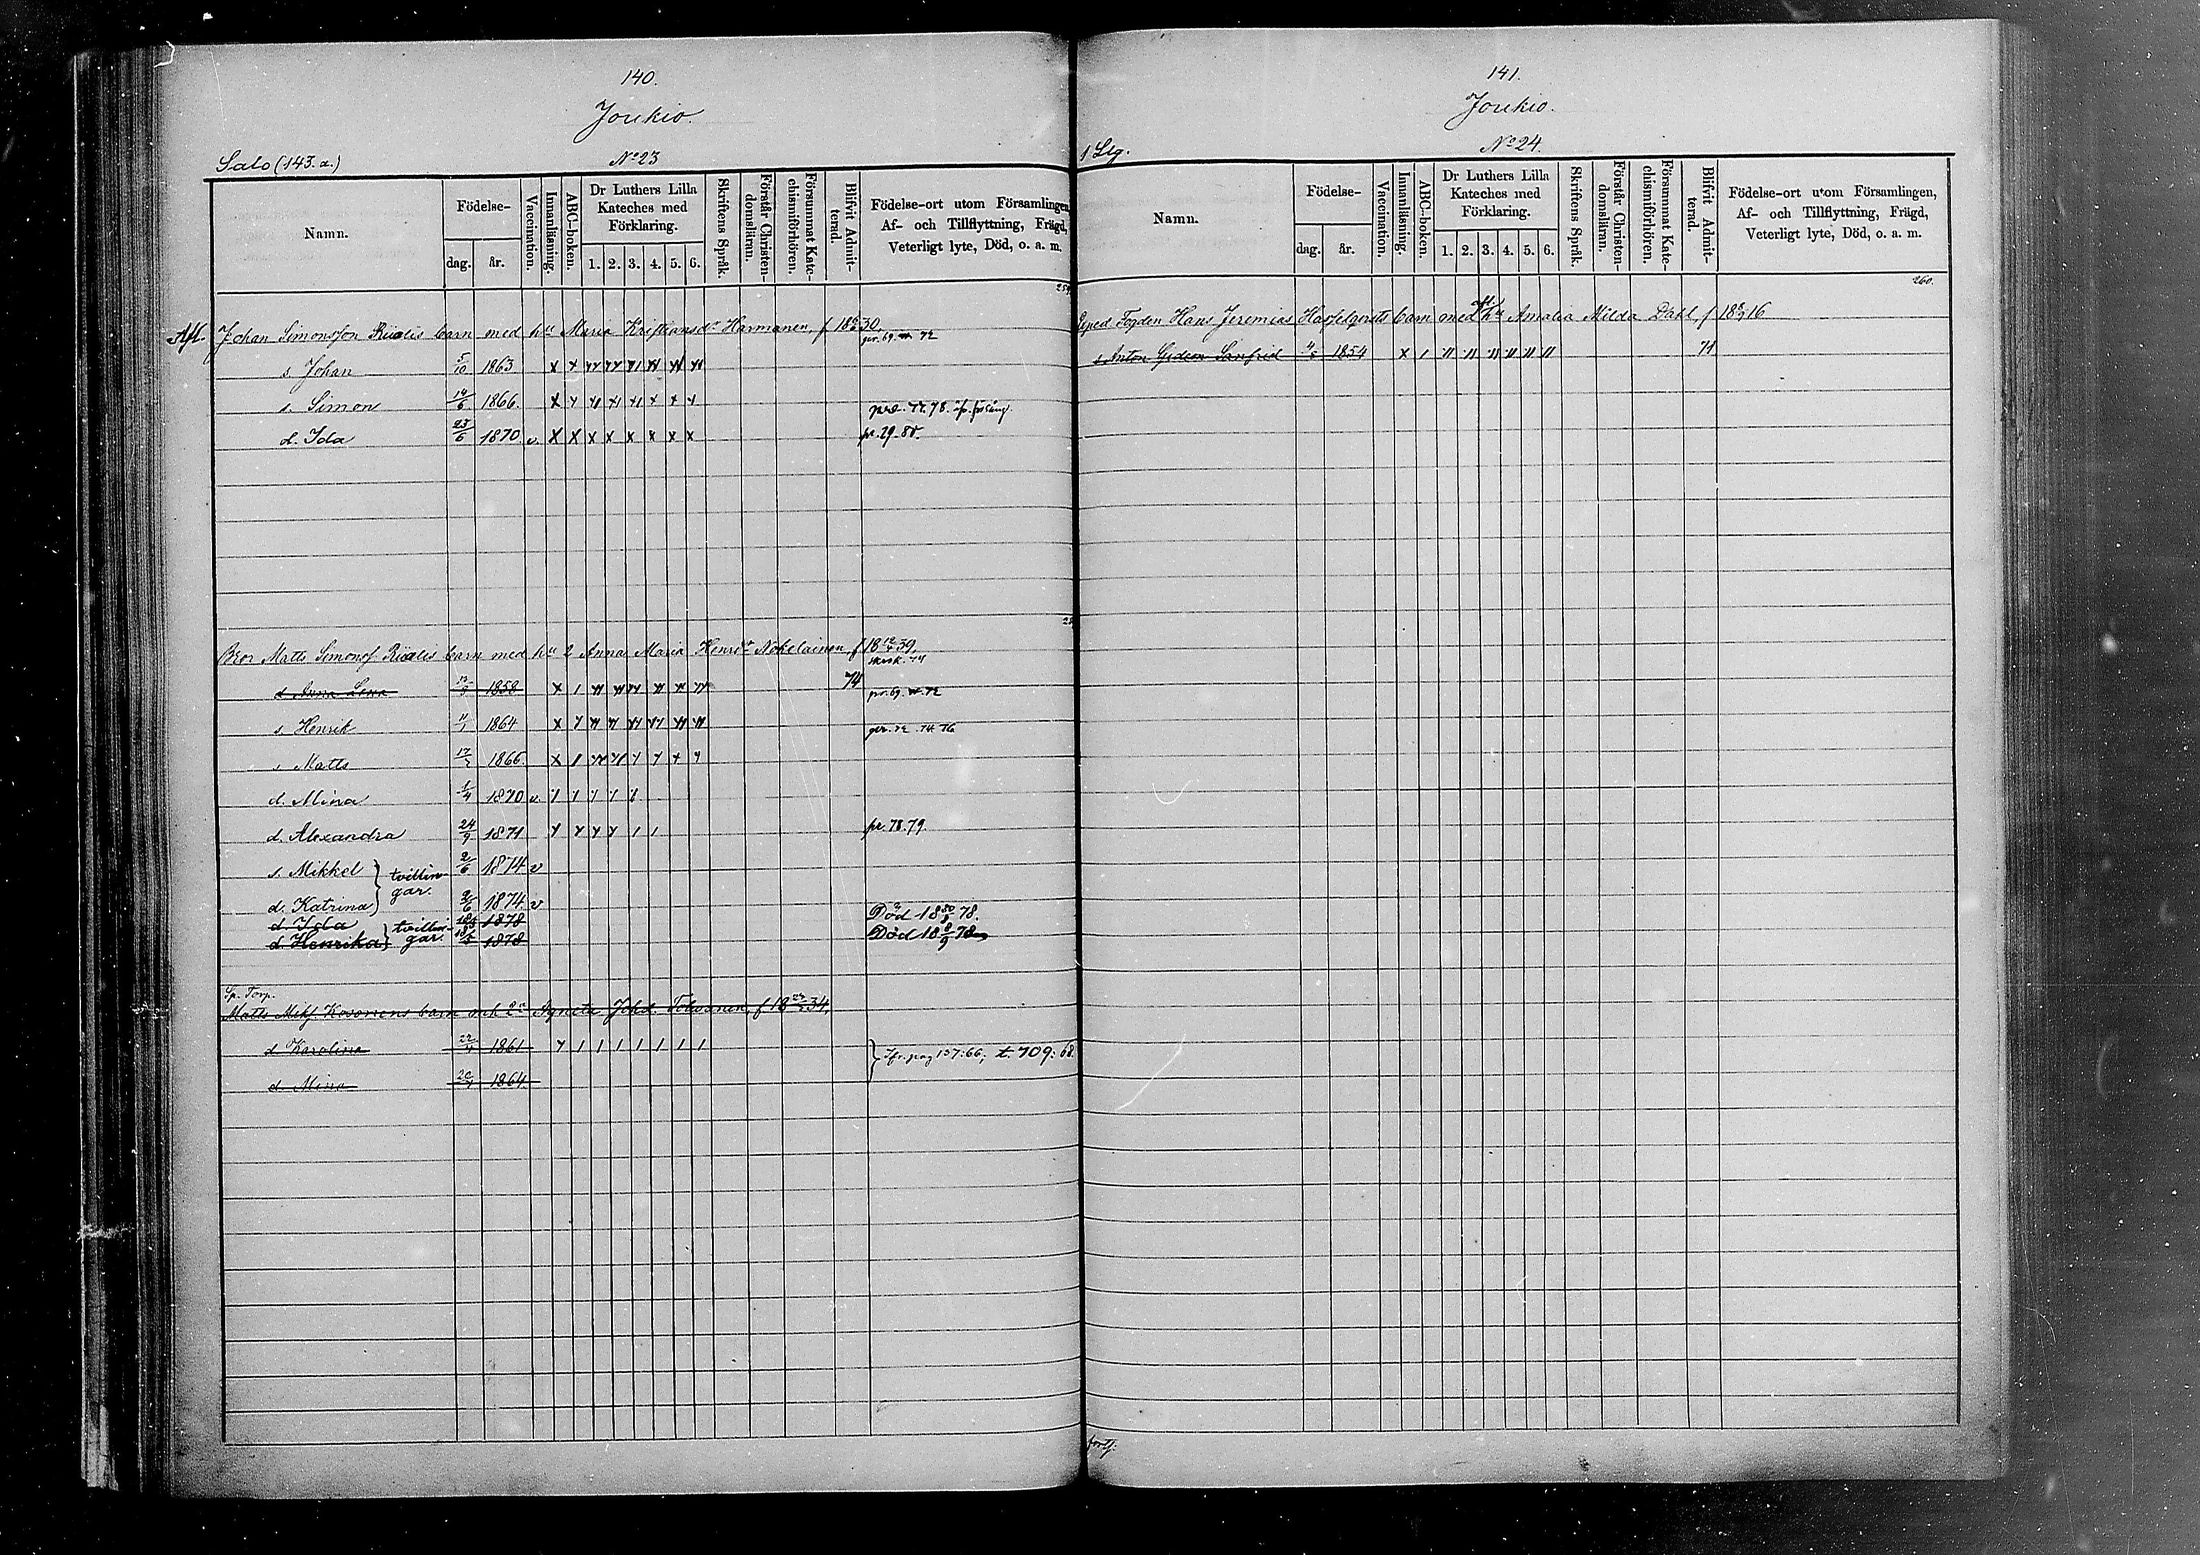 140.
Joukio.
Salo (143. a.)
No 23
Namn.
Födelse-
dag.
år.
Vaccination.
Innanläsning.
ABC-boken.
Dr Luthers Lilla Kateches med Förklaring.
1. 2. 3. 4. 5. 6.
Skriftens Språk.
Förstår Christen-domsläran.
Försummat Kate-chismiförhören.
Blifvit Admit-terad.
Födelse-ort utom Församlingen, Af- och Tillflyttning, Frägd, Veterligt lyte, Död, o. a. m.
Afl. Johan Simonsson barn med hu Maria Kristiansdr Harmanen, f 30.
pr. 69. 72
s. Johan 5/10 1863
s. Simon 14/6 1866.
d. Ida 23/6 1870. v. pr. 79-80.
Bror Matts Simonss barn med hu 2 Anna Maria Henrdr Nokelainen, f 39.
d Anna Lena 1858 74 pr. 69. 72
s. Henrik 1864 74 76
s Matts 1866.
d. Mina 1/4 1870 v.
d. Alexandra 24/9 1871 pr. 78. 79.
s. Mikkel } tvillin- 2/6 1874 v
d. Katrina } gar. 2/6 1874 v
d. Ida } tvillin- 1878 Död 78.
d. Henrika } gar. 1878 Död 18 8/9 78
Sp. Torp.
Matts Mikss Kosonens barn och Agneta Johd. Tolvanen, f 34.
d Karolina 1861 } Jfr. pag 157:66; t. 709: 68.
d. Mina 1864.
141.
Joukio.
1 Slg.
No 24.
Namn.
Födelse-
dag.
år.
Vaccination.
Innanläsning.
ABC-boken.
Dr Luthers Lilla Kateches med Förklaring.
1. 2. 3. 4. 5. 6.
Skriftens Språk.
Förstår Christen-domsläran.
Försummat Kate-chismiförhören.
Blifvit Admit-terad.
Födelse-ort utom Församlingen, Af- och Tillflyttning, Frägd, Veterligt lyte, Död, o. a. m.
260.
Exped Fogden Hans Jeremias Hasselqvists barn med afl. hu Amalia Milda Dahl, f 16
s. Anton Gideon Sanfrid 1854 71
forts.